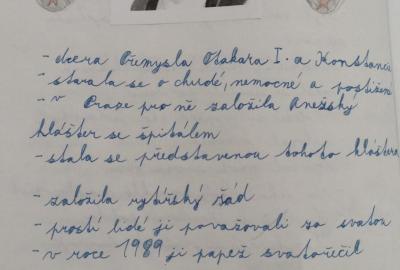 - dcera Přemysla Otakara I. a Konstancie
- starala se o chudé, nemocné a postižené
- v Praze pro ně založila Anežský
klášter se špitálem
- stala se představenou tohoto kláštera
- založila rytířský řád
- prostí lidé ji považovali za svatou
- v roce 1989 ji papež svatořečil